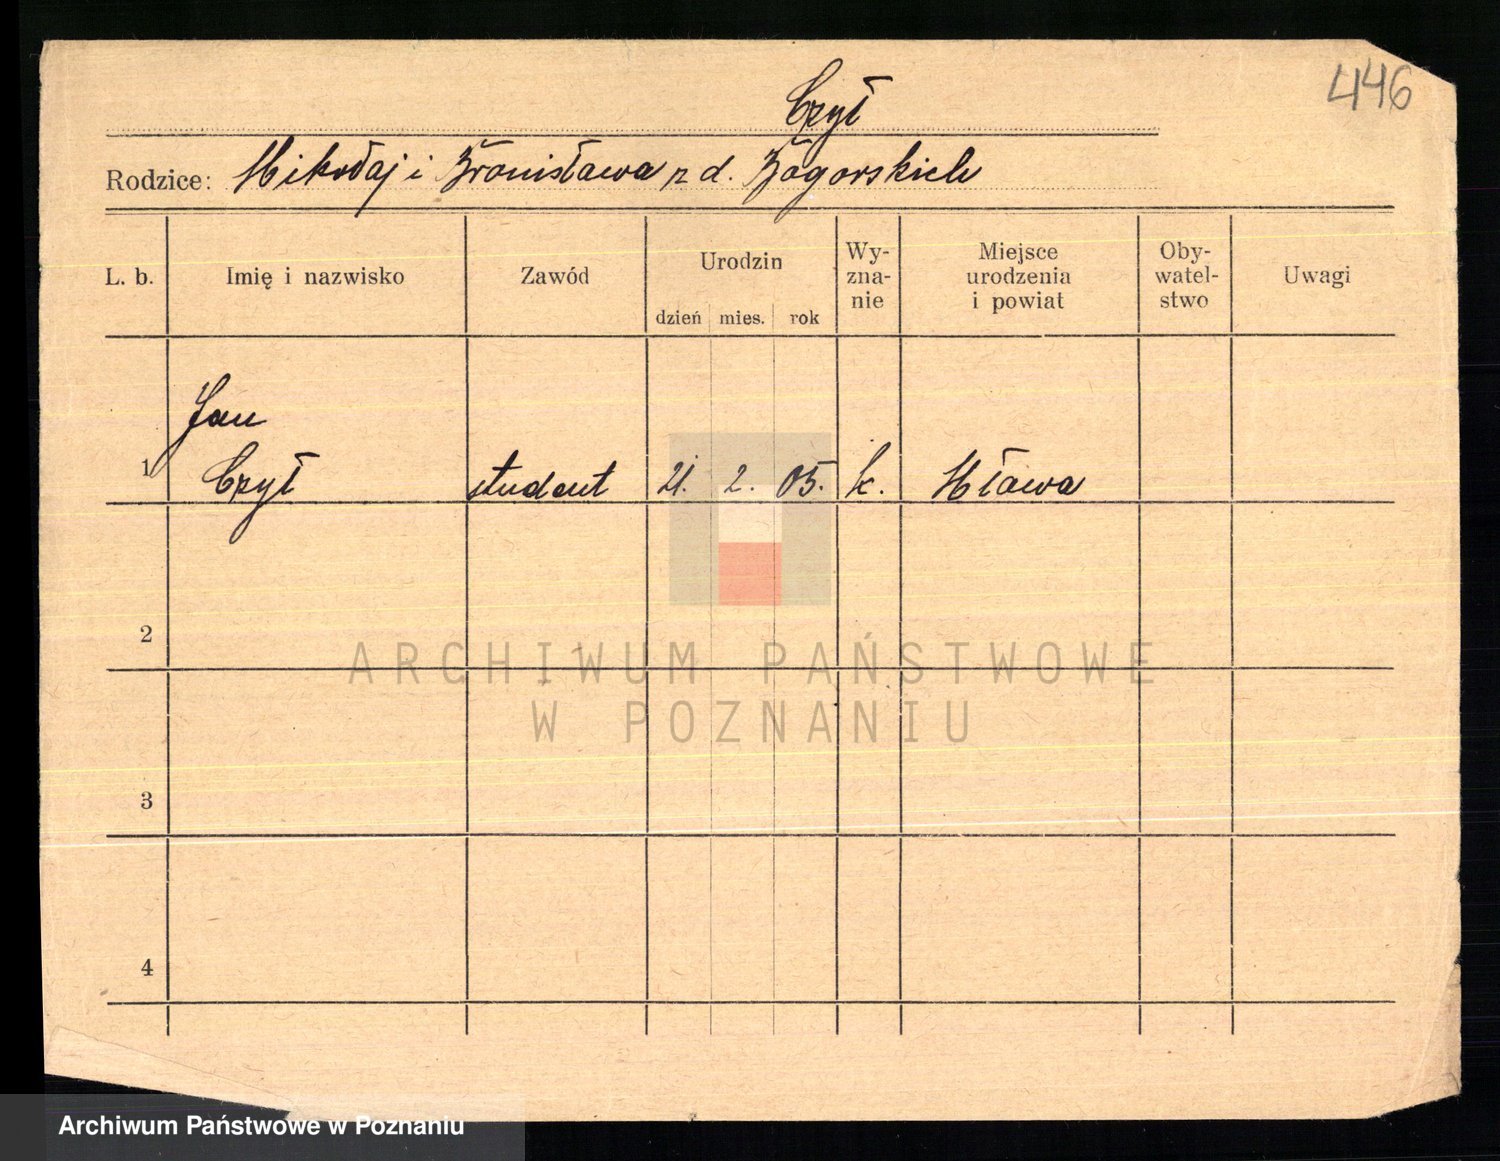 446
Czył
Rodzice: Mikołaj i Bronisława z d. Zogorskich
L. b. Imię i nazwisko Zawód Urodzin dzień mies. rok Wy-zna-nie Miejsce urodzenia i powiat Oby-watel-stwo Uwagi
Jan
1 Czył student 21. 2. 05. k. Mława
2
3
4
ARCHIWUM PAŃSTWOWE
W POZNANIU
Archiwum Państwowe w Poznaniu